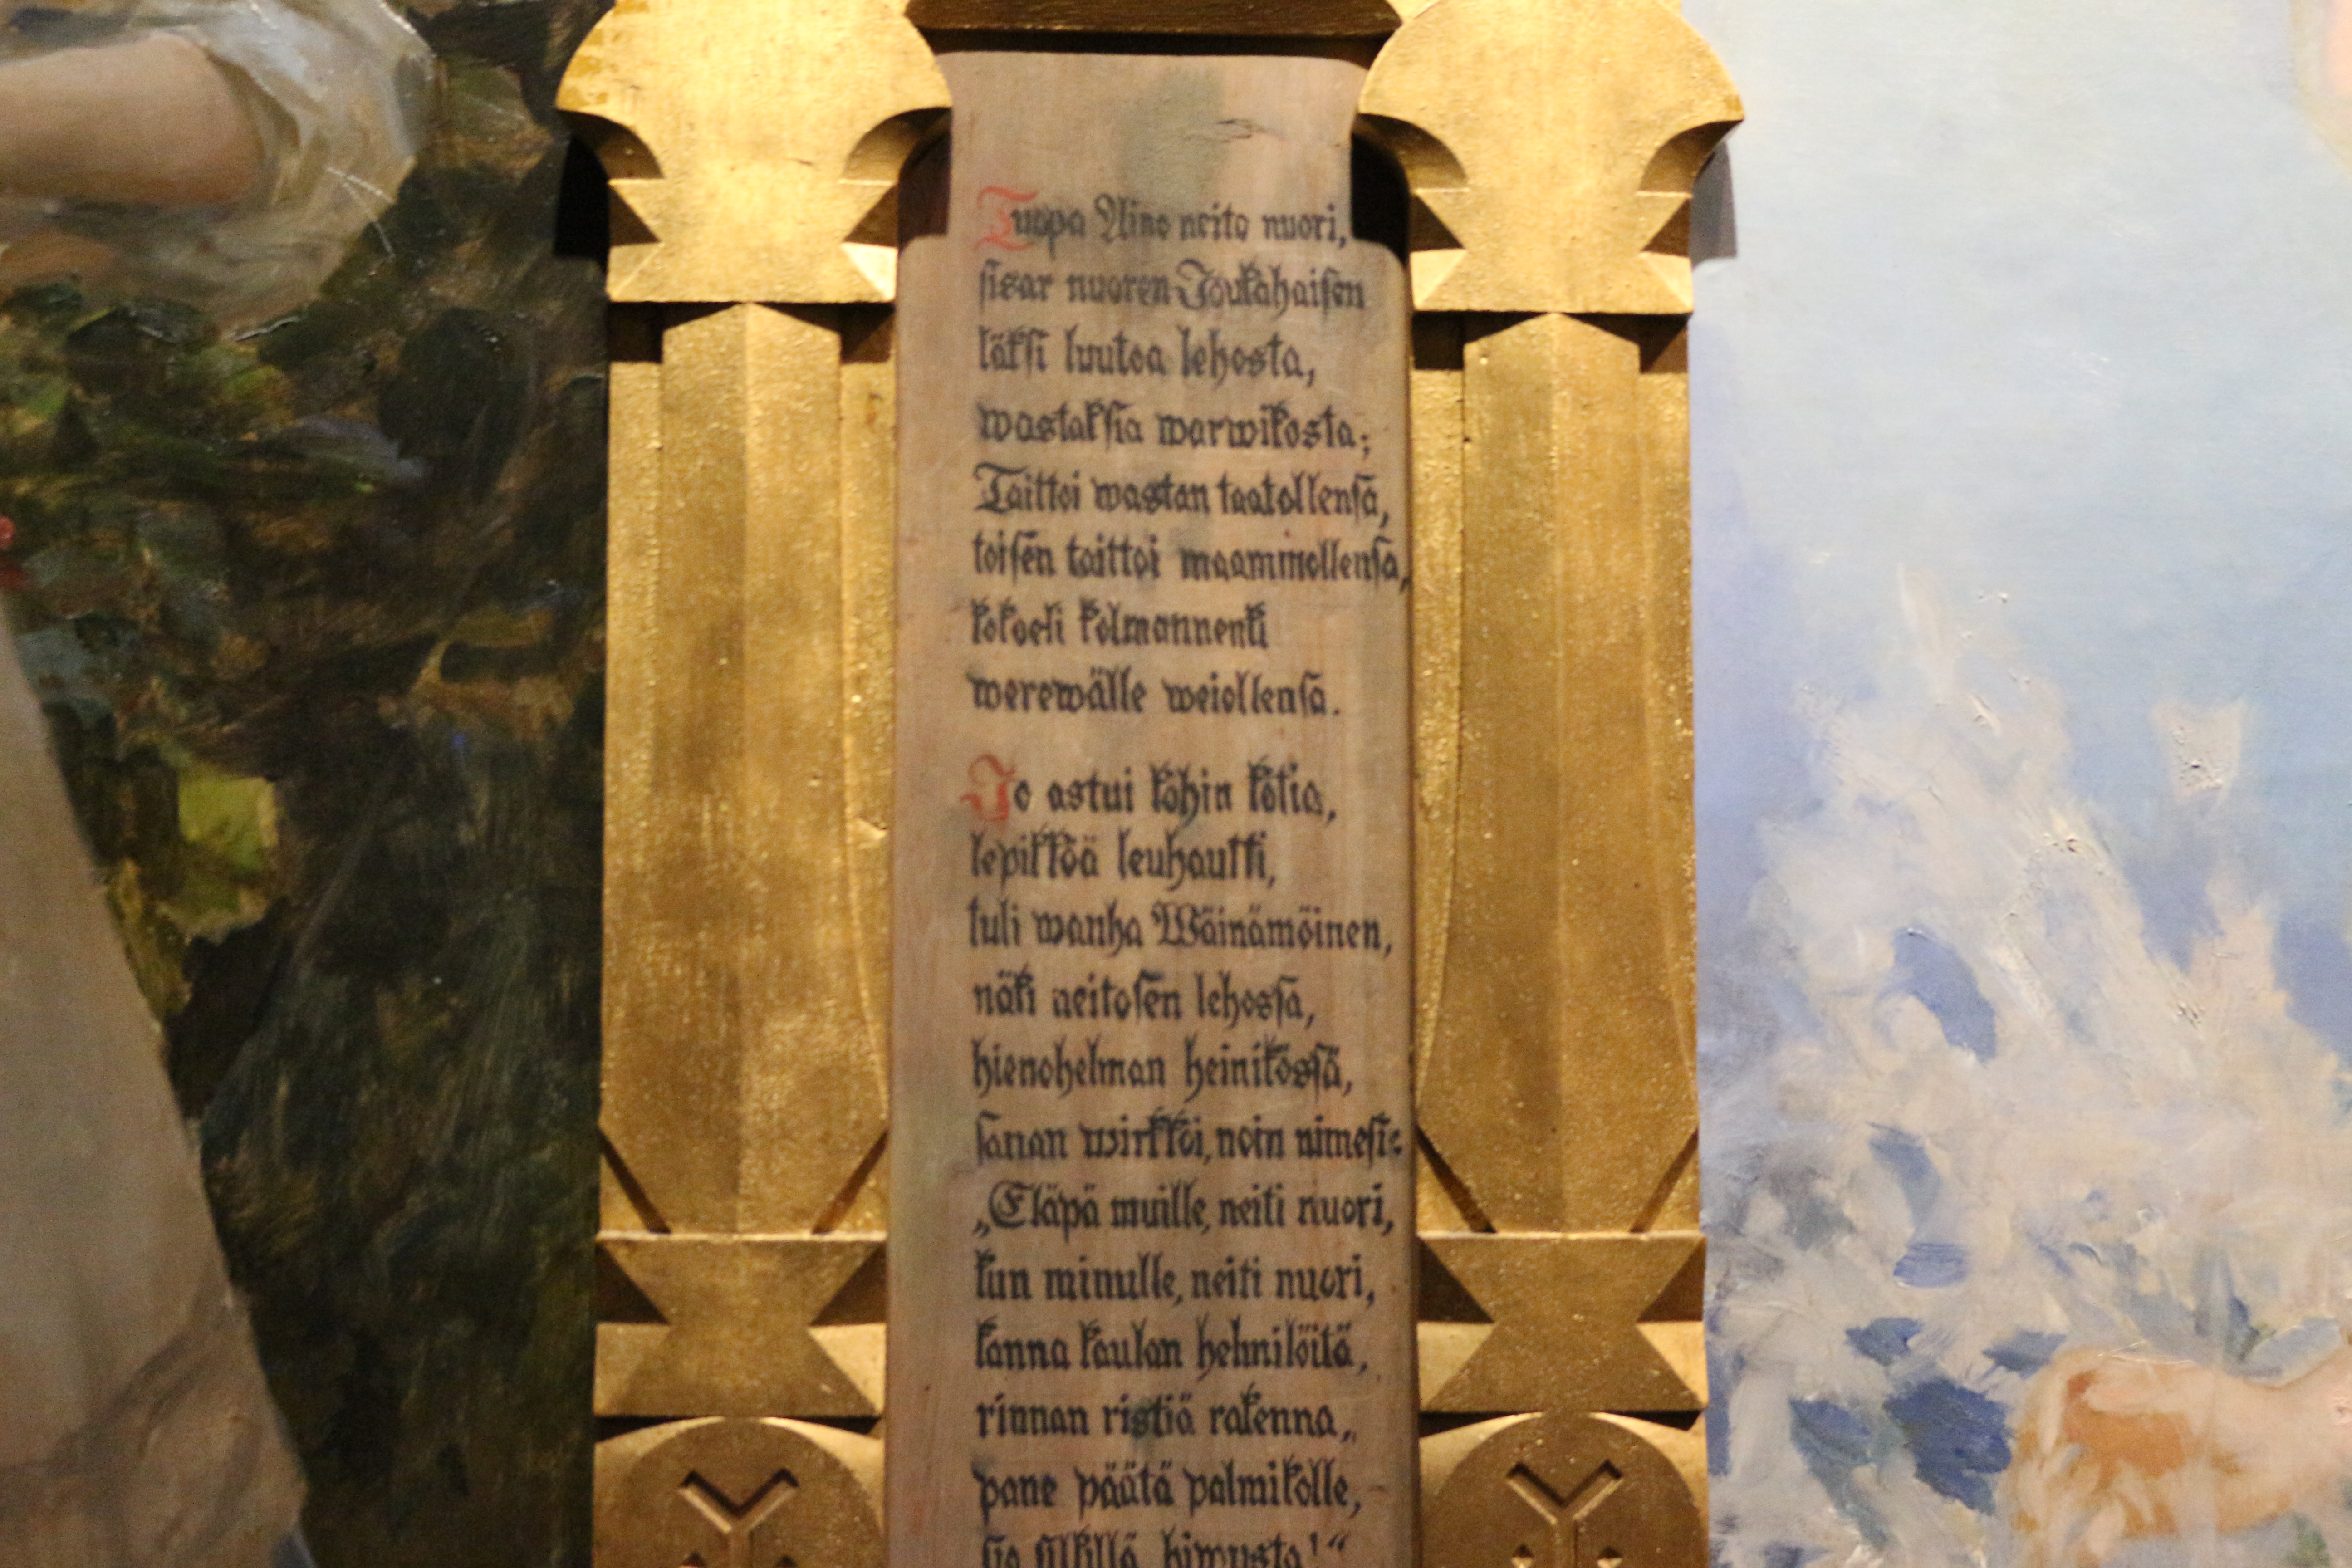 Tuopa Aino neito nuori,
sisar nuoren Joukahaisen
läksi luutoa lehosta,
wastaksia warwikosta;
Taittoi wastan taatollensa,
toisen taittoi maammollensa,
kokoeli kolmannenki
werewälle weiollensa.
Jo astui kohin kotia,
lepikköä leuhautti,
tuli wanha Wäinämöinen,
näki neitosen lehossa,
hienohelman heinikössä,
sanan wirkkoi, noin nimesi:
„Eläpä muille, neiti nuori,
kun minulle, neiti nuori,
kanna kaulan helmilöitä,
rinnan ristiä rakenna,
pane päätä palmikolle,
sio silkillä hiwusta!“